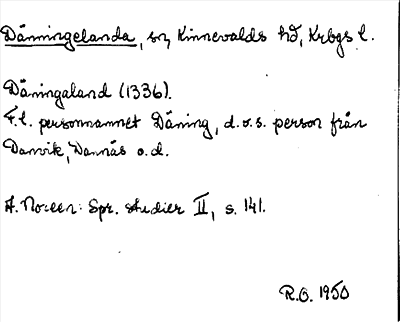 Dänningelanda, sn, Kinnevalds hd, Krbgs l.
Däningaland (1336).
F.l. personnamnet Däning, d.v.s. person från
Danvik, Dannäs o.d.
A. Noreen: Spr. studier II, s. 141.
R.O. 1950